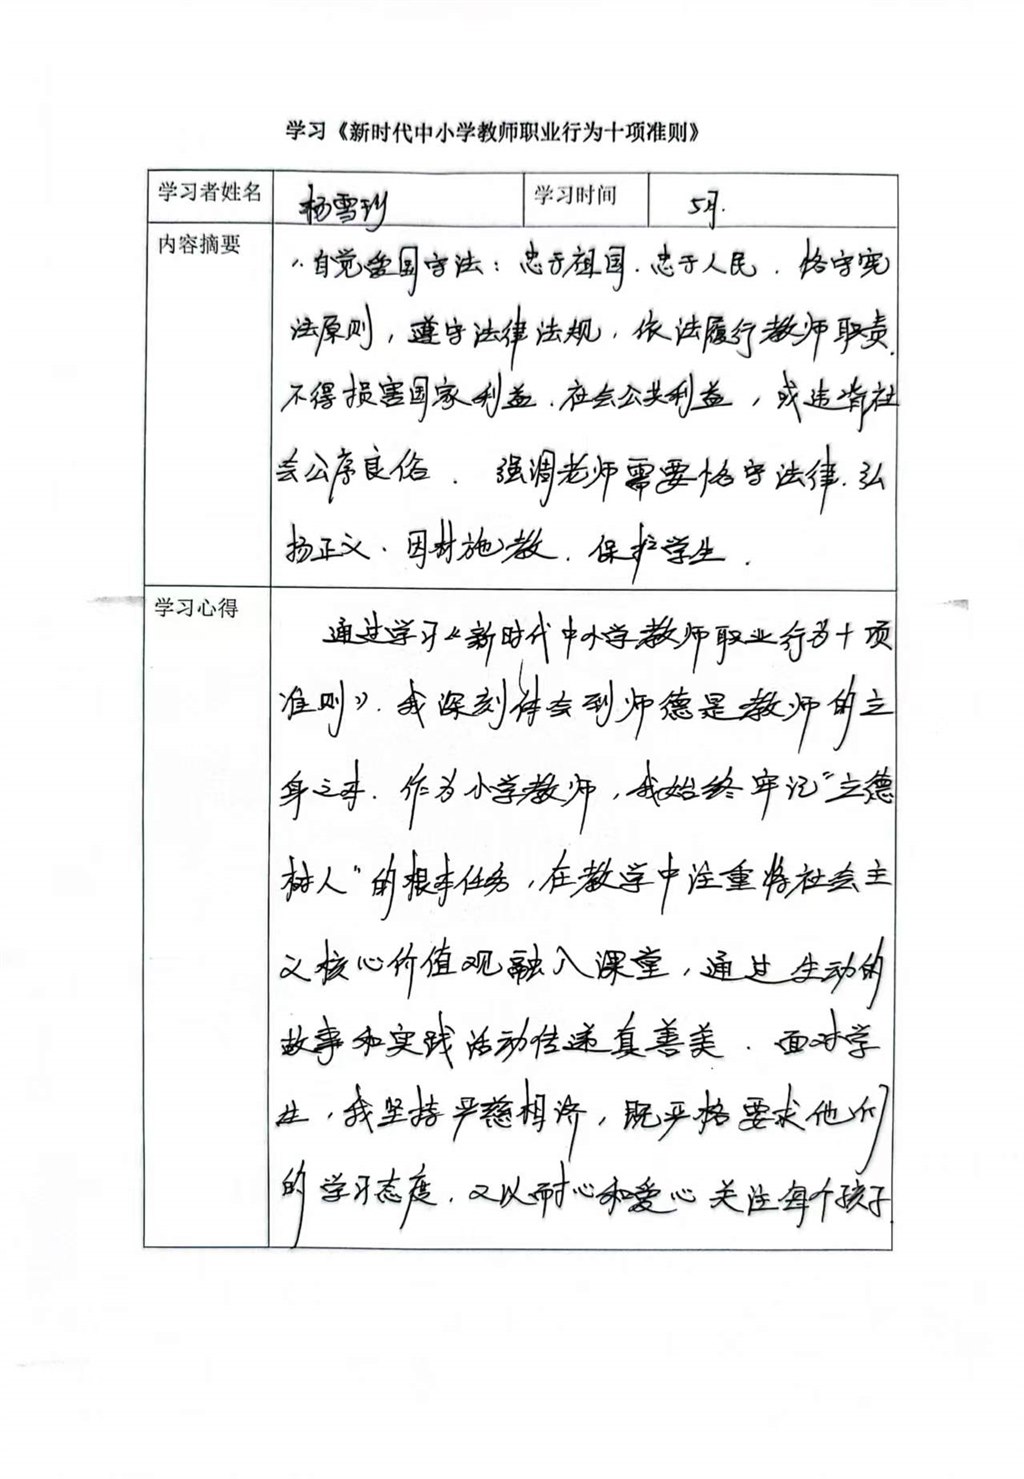 学习《新时代中小学教师职业行为十项准则》
学习者姓名 杨雪 学习时间 5月.
内容摘要
自觉爱国守法：忠于祖国.忠于人民.恪守宪
法原则，遵守法律法规，依法履行教师职责.
不得损害国家利益.社会公共利益，或违背社
会公序良俗. 强调老师需要恪守法律.弘
扬正义.因材施教.保护学生.
学习心得
通过学习《新时代中小学教师职业行为十项
准则》.我深刻体会到师德是教师的立
身之本.作为小学教师，我始终牢记“立德
树人”的根本任务，在教学中注重将社会主
义核心价值观融入课堂，通过生动的
故事和实践活动传递真善美.面对学
生，我坚持严慈相济，既严格要求他们
的学习态度.又以耐心和爱心关注每个孩子